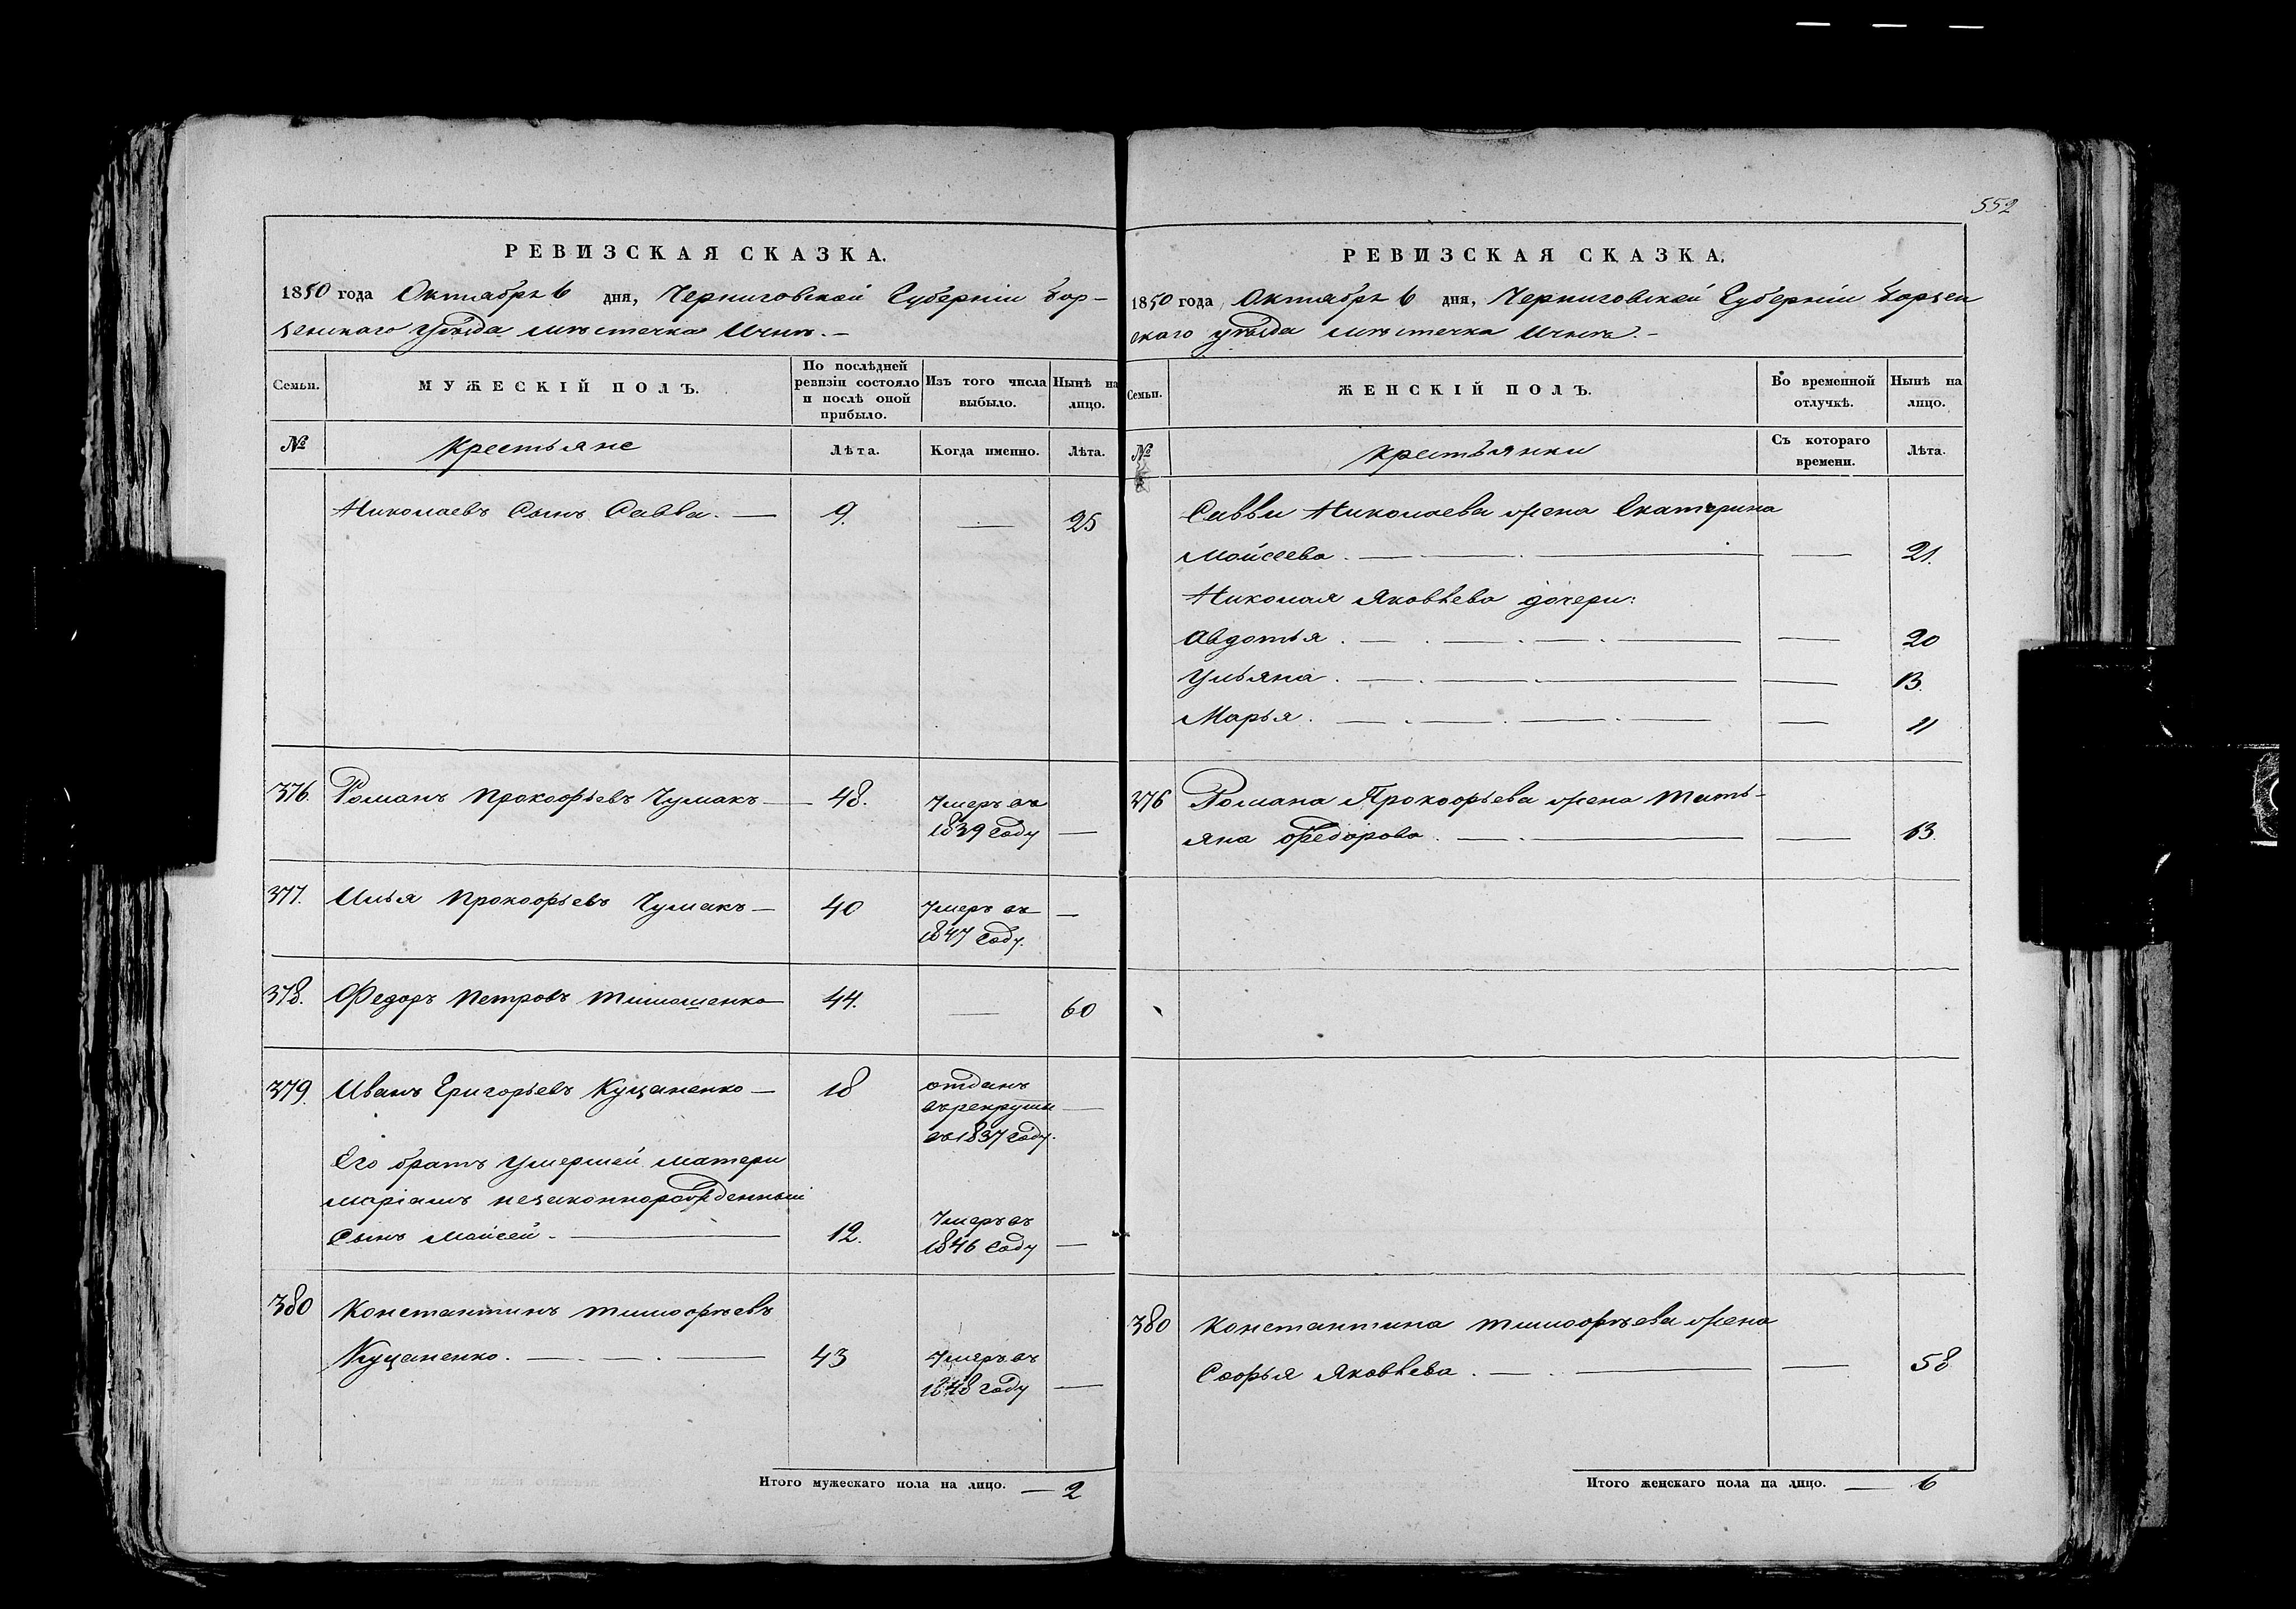 552
РЕВИЗСКАЯ СКАЗКА.
1850 года Октября 6 дня, Черниговской Губерніи Бор-
зенскаго уѣзда мѣстечка Ичнѣ.-
Семьи.
МУЖЕСКІЙ ПОЛЪ.
По послѣдней ревизіи состояло и послѣ оной прибыло.
Изъ того числа выбыло.
Нынѣ на лицо.
№
Крестьяне
Лѣта.
Когда именно.
Лѣта.
Николаевъ Сынъ Савва. — 9. — 25
376. Романъ Прокофьевъ Чумакъ — 48. Умеръ въ
1839 году —
377. Илья Прокофьевъ Чумакъ — 40 Умеръ въ —
1847 году.
378. Федоръ Петровъ Тимошенко 44. — 60
379. Иванъ Григорьевъ Куцаненко — 18 отданъ
въ рекруты —
въ 1837 году.
Его братъ умершей матери
Маріамъ незаконнорожденный
Сынъ Мойсей. — 12. Умеръ въ
1846 году —
380 Константинъ Тимофѣевъ
Куцаненко. — 43 Умеръ въ
1848 году —
Итого мужескаго пола на лицо. — 2
РЕВИЗСКАЯ СКАЗКА.
1850 года Октября 6 дня, Черниговской Губерніи Борзен
скаго уѣзда мѣстечка Ичнѣ.-
Семьи.
ЖЕНСКІЙ ПОЛЪ.
Во временной отлучкѣ.
Нынѣ на лицо.
№
Крестьянки
Съ котораго времени.
Лѣта.
Саввы Николаева жена Екатерина
Мойсеева. — — 21.
Николая Яковлева дочери:
Авдотья. — — 20
Ульяна. — — 13.
Марья. — — 11
376 Романа Прокофьева жена Тать-
яна Федорова. — — 63.
380 Константина Тимофѣева жена
Софья Яковлева. — — 58
Итого женскаго пола на лицо. — 6